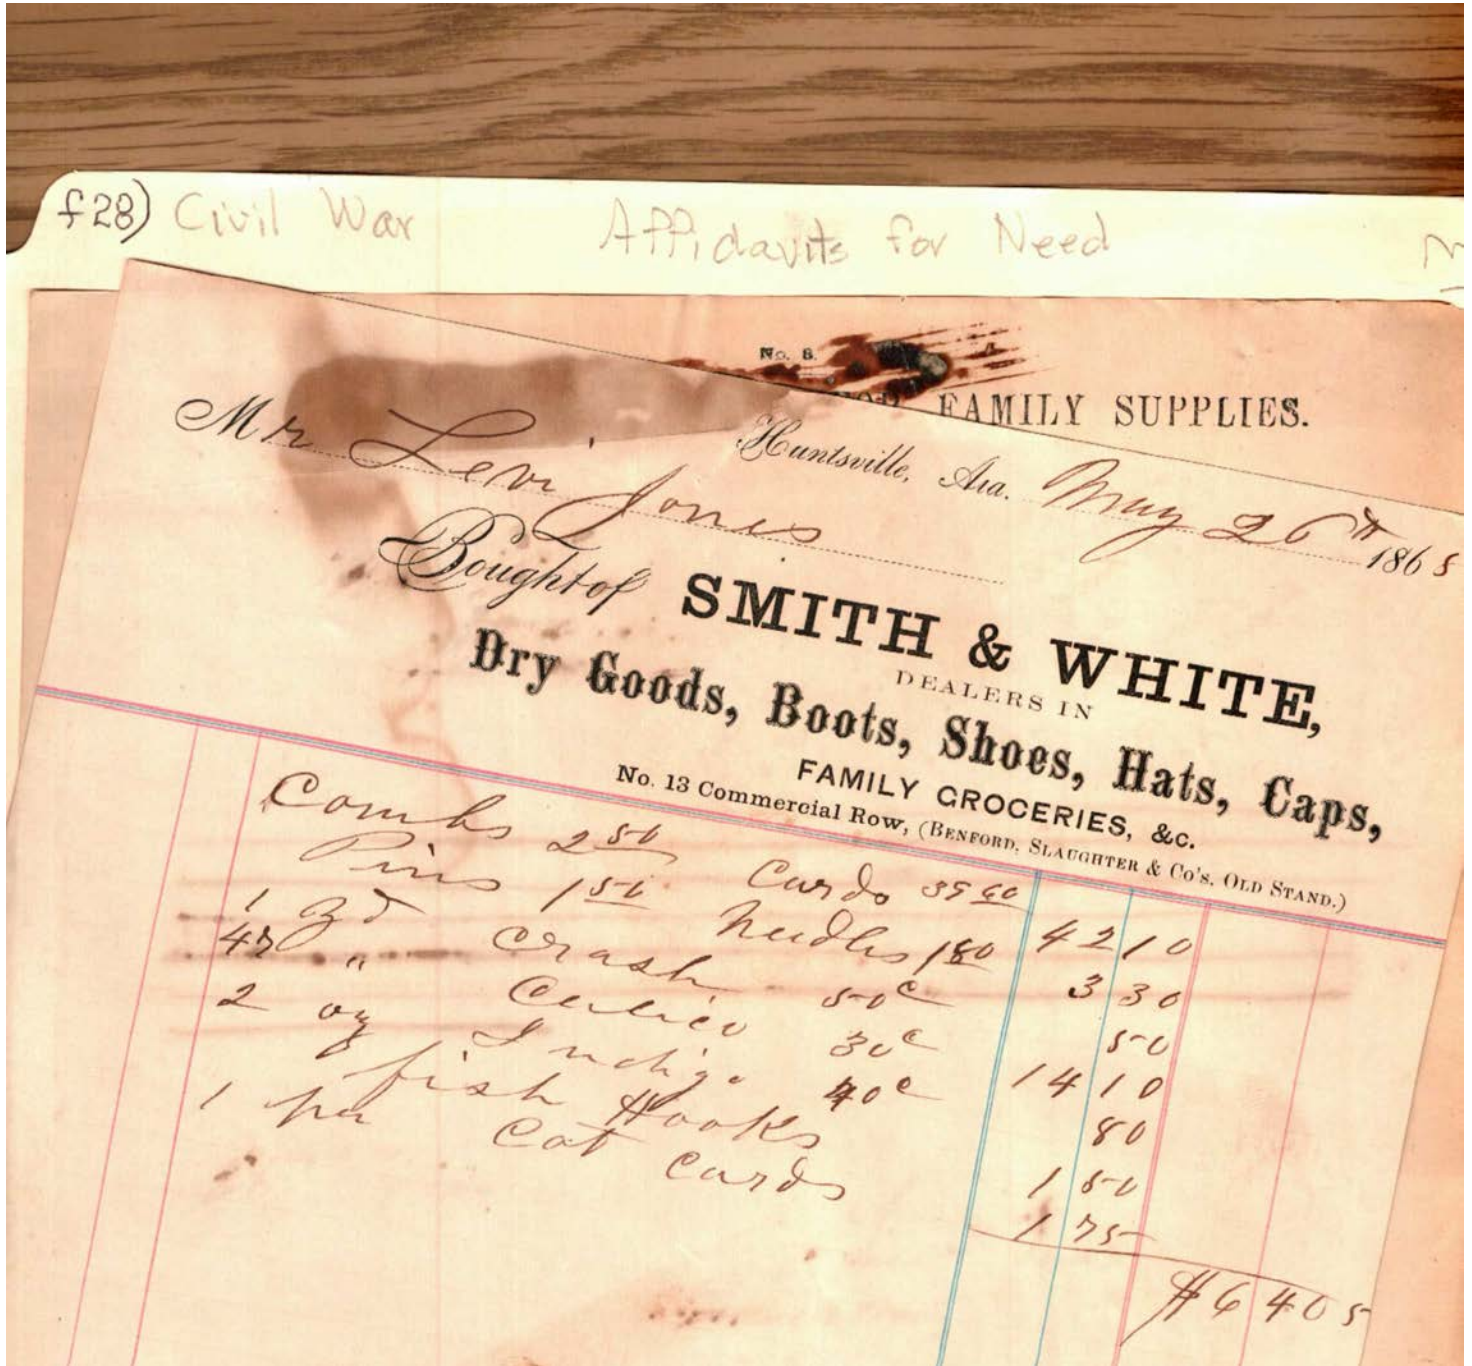 f28) Civil War Affidavits for Need
No. 8.
FAMILY SUPPLIES.
Huntsville, Ala. May 26th 1865
Mr Levi Jones
Bought of SMITH & WHITE,
DEALERS IN
Dry Goods, Boots, Shoes, Hats, Caps,
FAMILY GROCERIES, &c.
No. 13 Commercial Row, (BENFORD, SLAUGHTER & Co's. OLD STAND.)
Combs 2 50 Cards 39 60 42 10
Pins 1 50 Needles 1 80 3 30
1 yd Crash 50c 50
47 " Calico 30c 14 10
2 oz Indigo 40c 80
fish Hooks 1 50
1 pr Cot Cards 1 75
$64 05